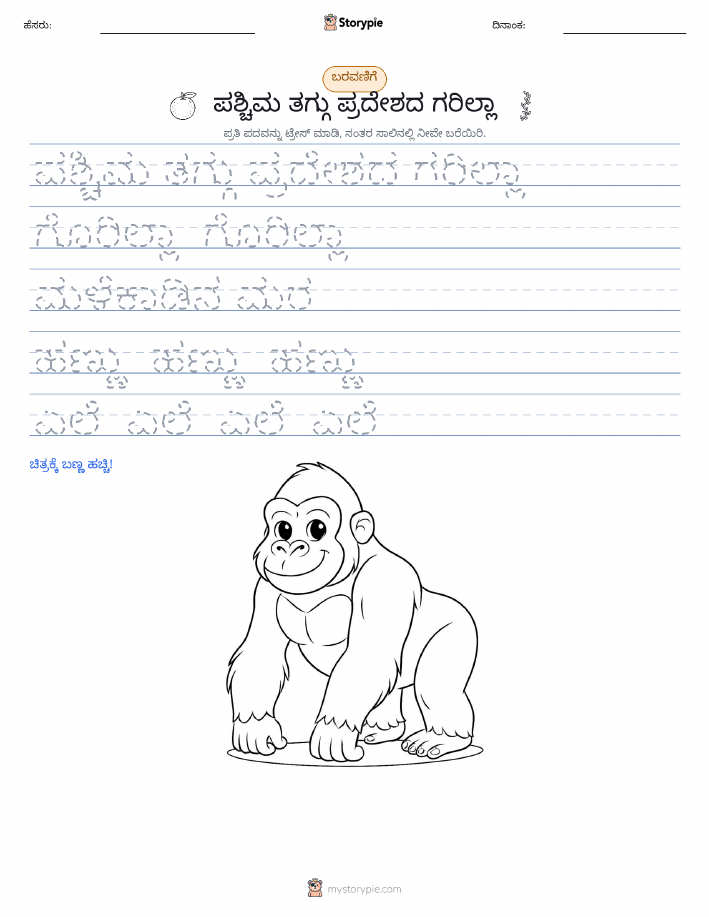 ಹೆಸರು:
Storypie
ದಿನಾಂಕ:
ಬರವಣಿಗೆ
ಪಶ್ಚಿಮ ತಗ್ಗು ಪ್ರದೇಶದ ಗರಿಲ್ಲಾ
ಪ್ರತಿ ಪದವನ್ನು ಟ್ರೇಸ್ ಮಾಡಿ, ನಂತರ ಸಾಲಿನಲ್ಲಿ ನೀವೇ ಬರೆಯಿರಿ.
ಪಶ್ಚಿಮ ತಗ್ಗು ಪ್ರದೇಶದ ಗರಿಲ್ಲಾ
ಗೊರಿಲ್ಲಾ ಗೊರಿಲ್ಲಾ
ಮಳೆಕಾಡಿನ ಮರ
ಹಣ್ಣು ಹಣ್ಣು ಹಣ್ಣು
ಎಲೆ ಎಲೆ ಎಲೆ ಎಲೆ
ಚಿತ್ರಕ್ಕೆ ಬಣ್ಣ ಹಚ್ಚಿ!
mystorypie.com